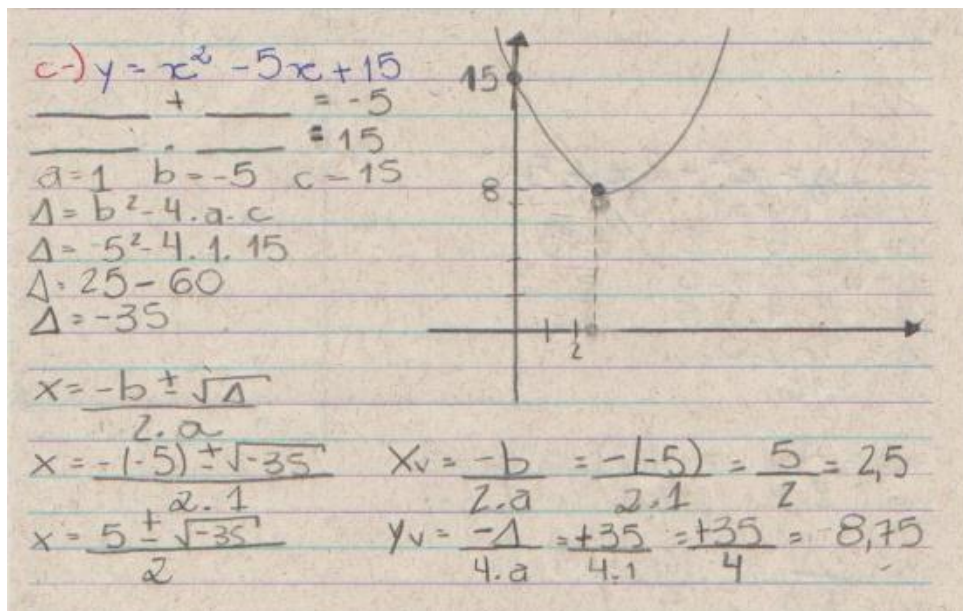 c-) y = x² - 5x + 15
____ + ____ = -5
____ . ____ = 15
a = 1 b = -5 c = 15
Δ = b² - 4.a.c
Δ = 5² - 4.1.15
Δ = 25 - 60
Δ = -35
x = -b ± √Δ / 2.a
x = -(-5) ± √-35 / 2.1
x = 5 ± √-35 / 2
15
8
2
Xv = -b / 2.a = -(-5) / 2.1 = 5 / 2 = 2,5
Yv = -Δ / 4.a = +35 / 4.1 = +35 / 4 = 8,75